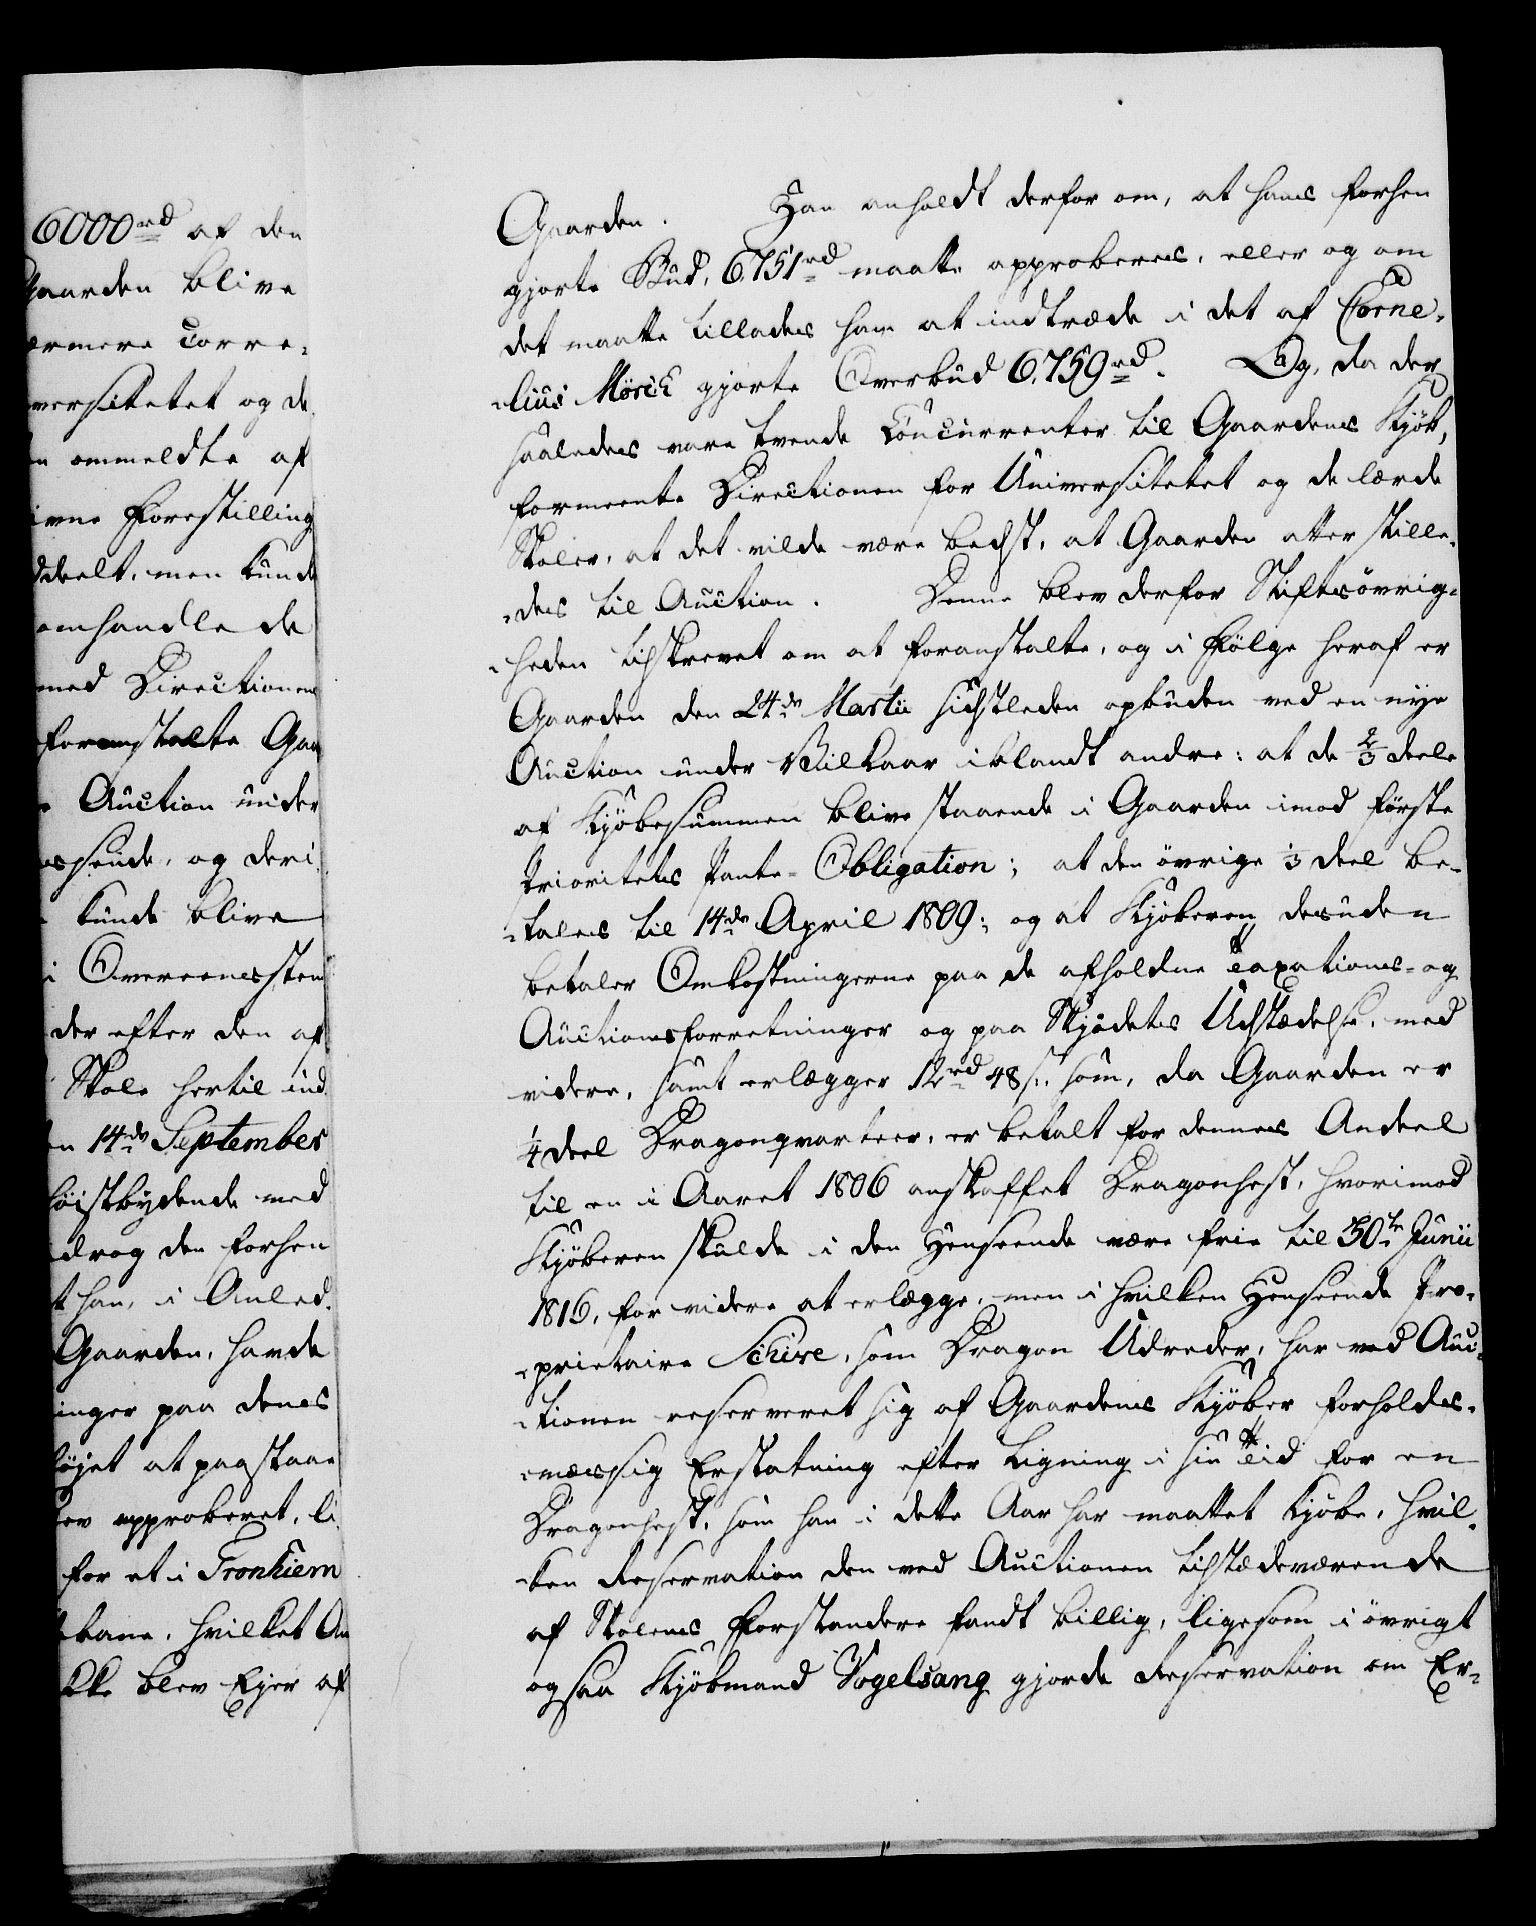 6000rd af den
Gaarden blive
ermere Corre-
versitetet og de
ommeldte af
ivne Forestilling
ddeelt, men kunde
omhandlede
med Directionens
foranstalte Gaa
Auction under
og deri
kunde blive
i Overeensstem
der efter den af
Skole hertil ind
14de September
høistbydende med
drog den forhen
han, i Anled-
Gaarden, havde
inger paa dens
føjet at paastaae
lev approberet, li
for et i Tronhiem
bane, hvilket An
blev Ejer af
Gaarden. Han anholdt derfor om, at hans forhen
gjorte Bud, 6751rd maatte approberes, eller og om
det maatte tillades ham at indtræde i det af Corne-
-lius Mørch gjorte Overbud 6759rd. Og, da der
saaledes vare tvende Concurrenter til Gaardens Kjøb,
formeente Directionen for Universitetet og de lærde
Skoler, at det vilde være bedst, at Gaarden atter stille-
-des til Auction. Denne blev derfor Stiftsøvrig-
-heden tilskrevet om at foranstalte, og i Følge heraf er
Gaarden den 24de Martii sidstleden opbuden ved en nye
Auction under Vilkaar iblandt andre: at de 2/3 deele
af Kjøbesummen blive staaende i Gaarden imod første
Prioritets Pante-Obligation; at den øvrige 1/3 deel be-
-tales til 14de April 1809; og at Kjøberen desuden
betaler Omkostningerne paa de afholdne Taxations- og
Auctionsforretninger og paa Skjødets Udstædelse, med
videre, samt erlægger 12rd 48 s., som, da Gaarden er
1/4 deel Dragonqvarteer, er betalt for dennes Andeel
til en i Aaret 1806 anskaffet Dragonhest, hvorimod
Kjøberen skulde i den Henseende være frie til 30te Junii
1816, for videre at erlægge, men i hvilken Henseende Pro-
-prietaire Schive, som Dragon Udreder, har ved Auc-
-tionen reserveret sig af Gaardens Kjøber forholds-
-mæssig Erstatning efter Ligning i sin Tid for en
Dragonhest, som han i dette Aar har maattet kjøbe, hvil-
-ken Reservation den ved Auctionen tilstædeværende
af Skolens Forstandere fandt billig, ligesom i øvrigt
ogsaa Kjøbmand Vogelsang gjorde Reservation om Er-